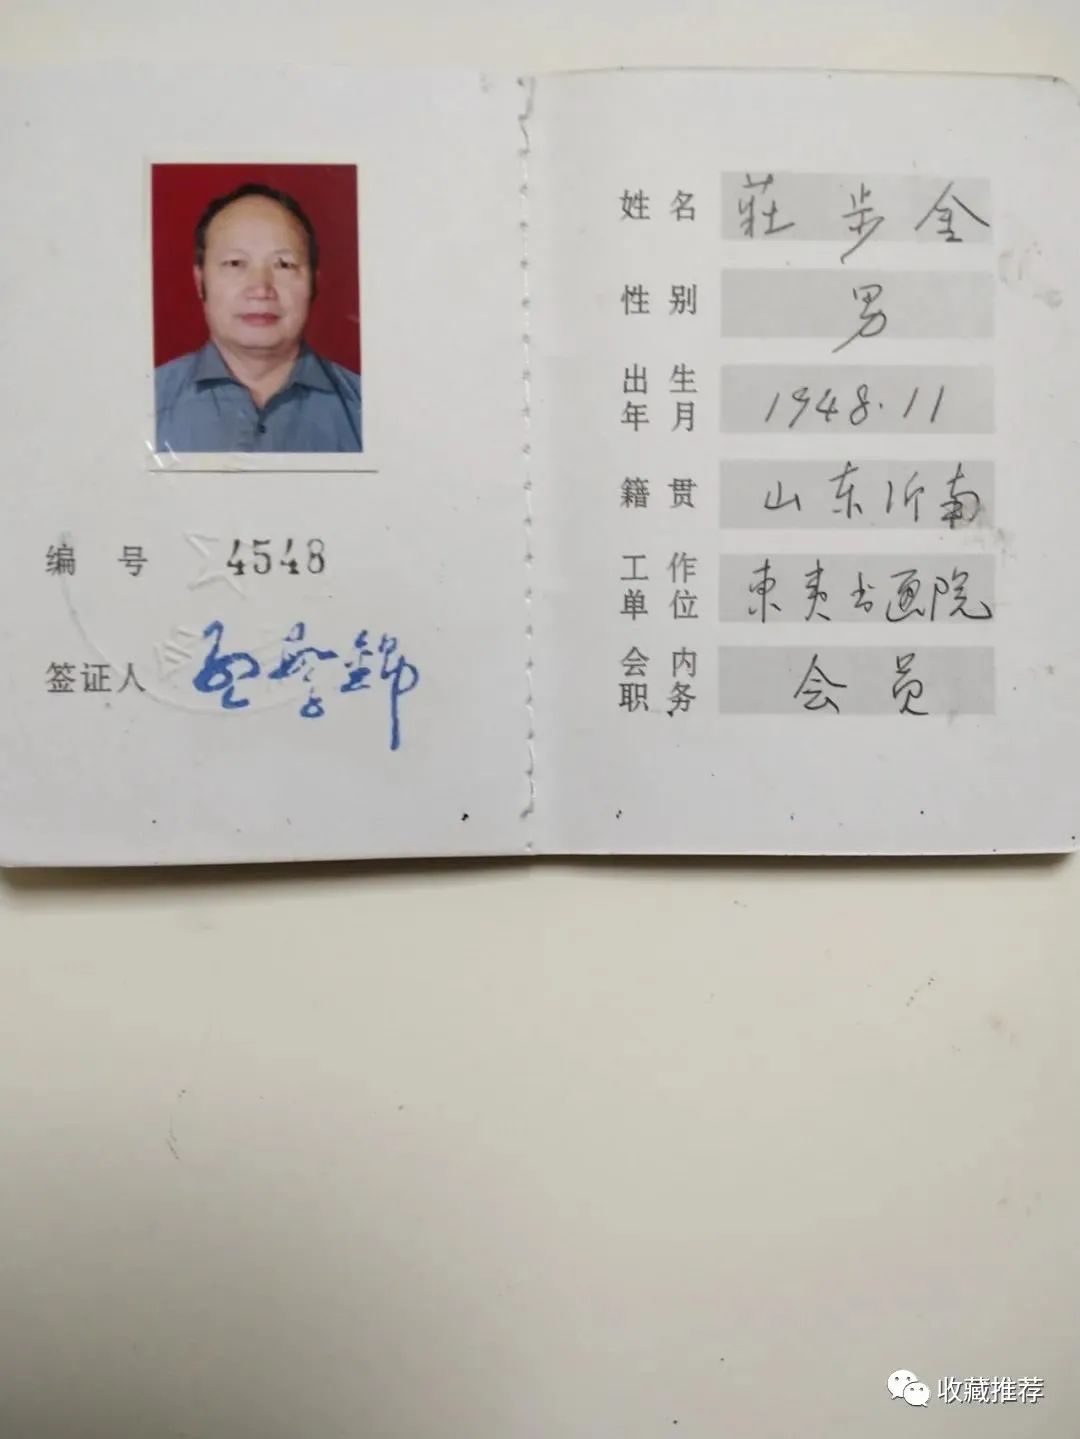 编号 4548
签证人
姓名 莊步金
性别 男
出生年月 1948.11
籍贯 山东沂南
工作单位 東夷书画院
会内职务 会员
收藏推荐